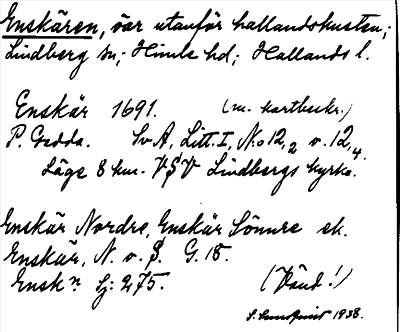 Enskären, öar utanför hallandskusten,;
Lindberg sn,; Himle hd,; Hallands l.
Enskär 1691. (m. kartbeskr.)
P. Gedda. Sv A, Litt. I, No 12,2 o. 12,4.
Läge 8 km. VSV Lindbergs kyrka.
Enskär Nordre, Enskär Sönnre ek.
Enskär, N. o. S. G. 18.
Ensk:n Sj: 275. (Vänd!)
1938.